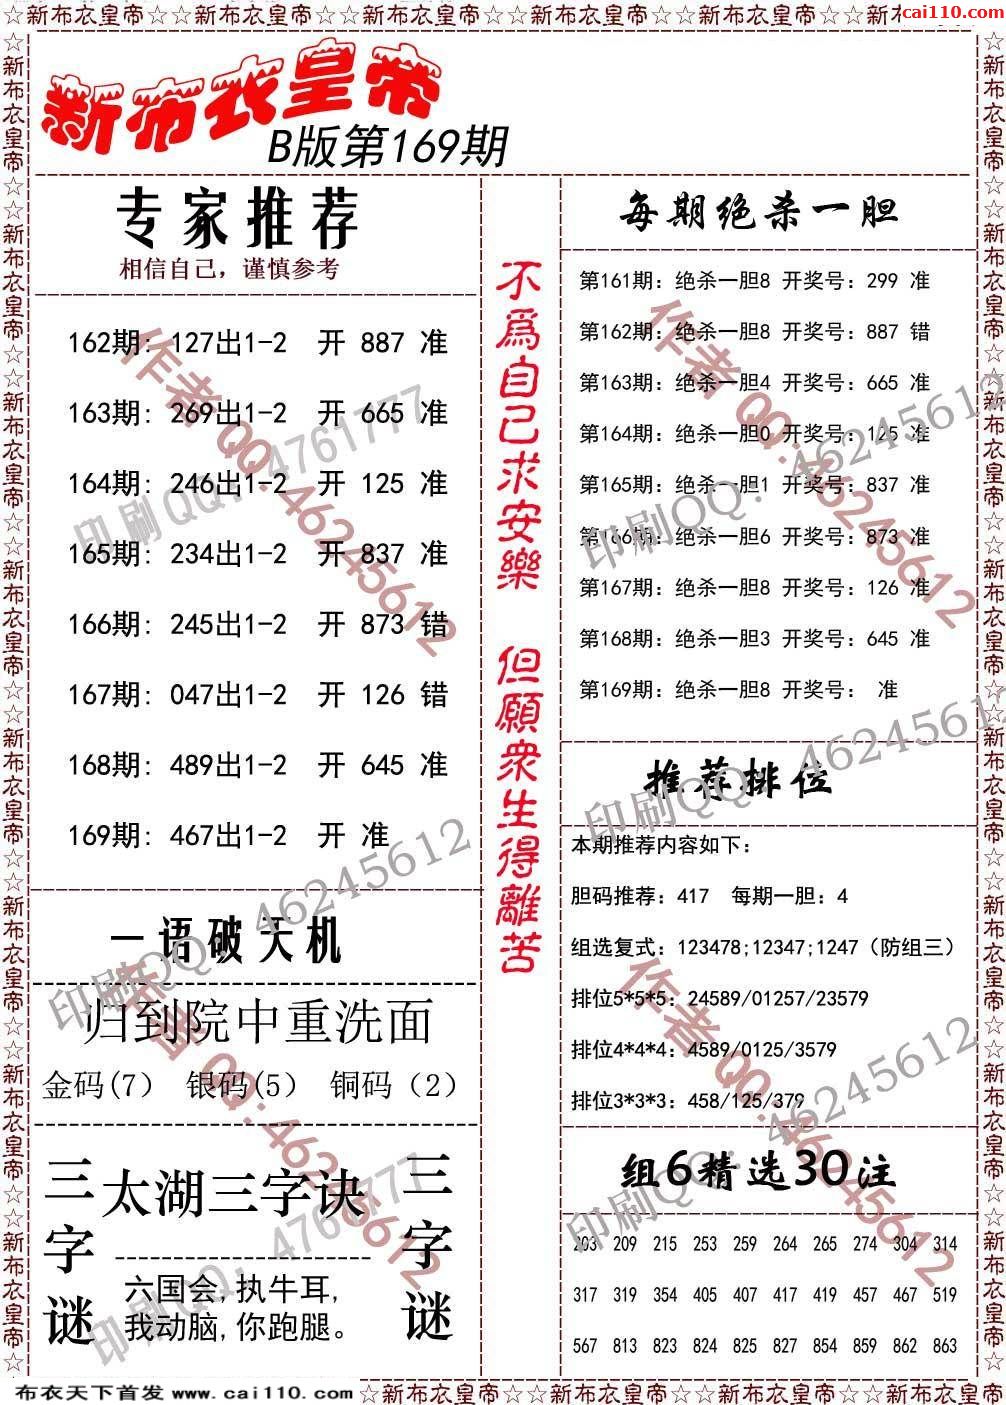 ☆新布衣皇帝☆☆新布衣皇帝☆☆新布衣皇帝☆☆新布衣皇帝☆☆新布衣皇帝☆☆新布衣皇帝☆☆新
cai110.com
新布衣皇帝
B版第169期
专家推荐
相信自己，谨慎参考
162期: 127出1-2 开 887 准
163期: 269出1-2 开 665 准
164期: 246出1-2 开 125 准
165期: 234出1-2 开 837 准
166期: 245出1-2 开 873 错
167期: 047出1-2 开 126 错
168期: 489出1-2 开 645 准
169期: 467出1-2 开 准
一语破天机
归到院中重洗面
金码(7) 银码(5) 铜码（2）
三字谜
太湖三字诀
六国会,执牛耳,
我动脑,你跑腿。
三字谜
不爲自己求安樂 但願衆生得離苦
每期绝杀一胆
第161期: 绝杀一胆8 开奖号: 299 准
第162期: 绝杀一胆8 开奖号: 887 错
第163期: 绝杀一胆4 开奖号: 665 准
第164期: 绝杀一胆0 开奖号: 125 准
第165期: 绝杀一胆1 开奖号: 837 准
第166期: 绝杀一胆6 开奖号: 873 准
第167期: 绝杀一胆8 开奖号: 126 准
第168期: 绝杀一胆3 开奖号: 645 准
第169期: 绝杀一胆8 开奖号: 准
推荐排位
本期推荐内容如下:
胆码推荐: 417 每期一胆: 4
组选复式: 123478;12347;1247（防组三）
排位5*5*5: 24589/01257/23579
排位4*4*4: 4589/0125/3579
排位3*3*3: 458/125/379
组6精选30注
203 209 215 253 259 264 265 274 304 314
317 319 354 405 407 417 419 457 467 519
567 813 823 824 825 827 854 859 862 863
作者QQ:46245612
印刷QQ: 4761777
作者QQ:46245612
印刷QQ: 46245612
印刷QQ: 46245612
印刷QQ: 46245612
作者QQ:46245612
印刷QQ: 4761777
作者QQ:46245612
印刷QQ: 46245612
布衣天下首发 www.cai110.com
☆新布衣皇帝☆☆新布衣皇帝☆☆新布衣皇帝☆☆新布衣皇帝☆